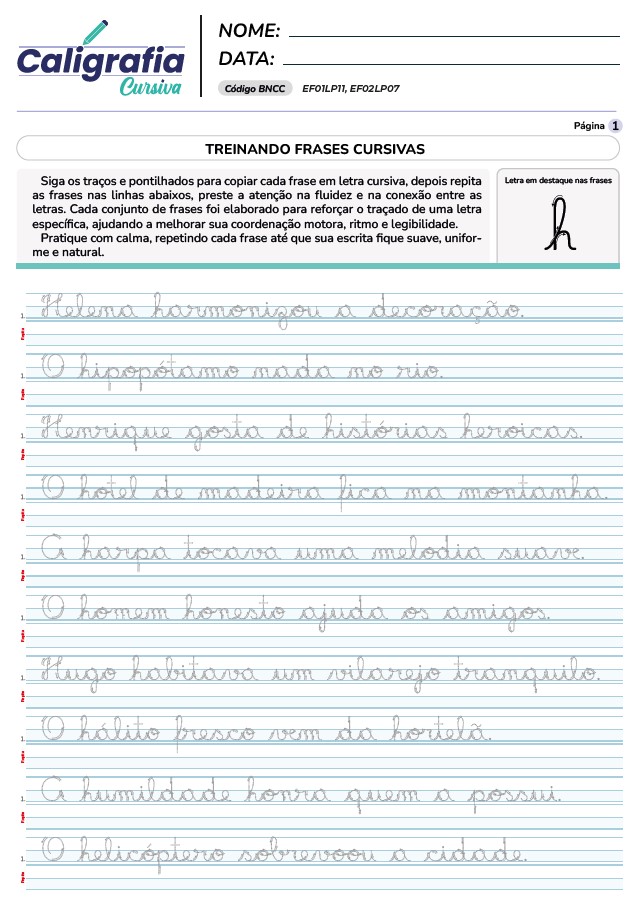 Caligrafia
Cursiva
NOME:
DATA:
Código BNCC EF01LP11, EF02LP07
Página 1
TREINANDO FRASES CURSIVAS
Siga os traços e pontilhados para copiar cada frase em letra cursiva, depois repita
as frases nas linhas abaixos, preste a atenção na fluidez e na conexão entre as
letras. Cada conjunto de frases foi elaborado para reforçar o traçado de uma letra
específica, ajudando a melhorar sua coordenação motora, ritmo e legibilidade.
Pratique com calma, repetindo cada frase até que sua escrita fique suave, unifor-
me e natural.
Letra em destaque nas frases
h
1. Helena harmonizou a decoração.
1. O hipopótamo nada no rio.
1. Henrique gosta de histórias heroicas.
1. O hotel de madeira fica na montanha.
1. A harpa tocava uma melodia suave.
1. O homem honesto ajuda os amigos.
1. Hugo habitava um vilarejo tranquilo.
1. O hálito fresco vem da hortelã.
1. A humildade honra quem a possui.
1. O helicóptero sobrevoou a cidade.